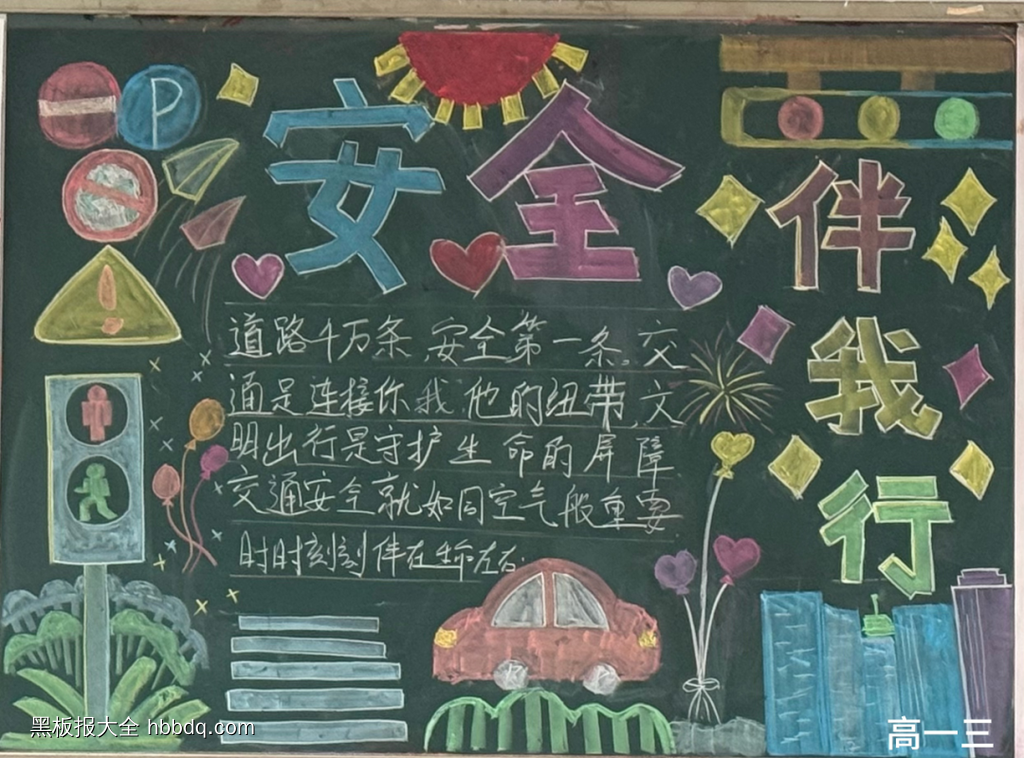 P
安全
伴我行
道路千万条,安全第一条,交
通是连接你我他的纽带,文
明出行是守护生命的屏障
交通安全就如同空气般重要
时时刻刻伴在生命左右.
黑板报大全 hbbdq.com
高一三